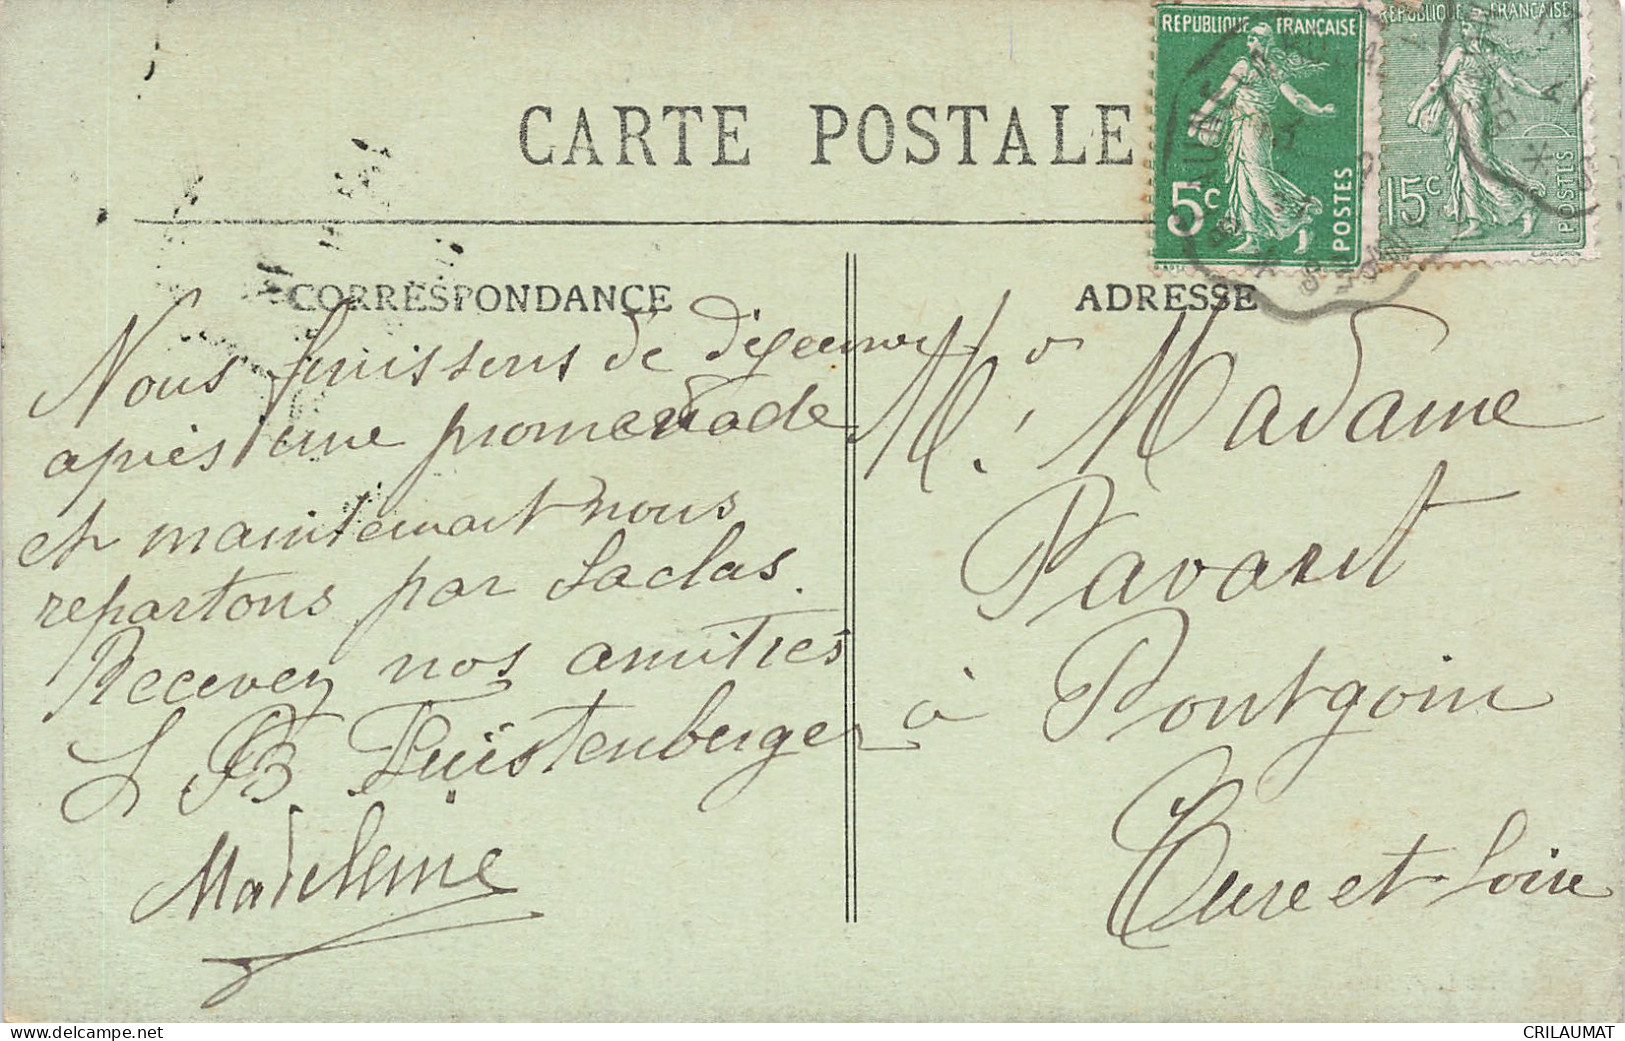 CARTE POSTALE
REPUBLIQUE FRANÇAISE
5c
POSTES
REPUBLIQUE FRANÇAISE
15c
POSTES
CORRESPONDANCE
Nous finissons de déjeuner
après une promenade
et maintenant nous
repartons par Saclas.
Recevez nos amitiés
Fürstenberger
Madeleine
ADRESSE
M. Madame
Pavard
à Pontgoin
Eure et Loire
CRILAUMAT